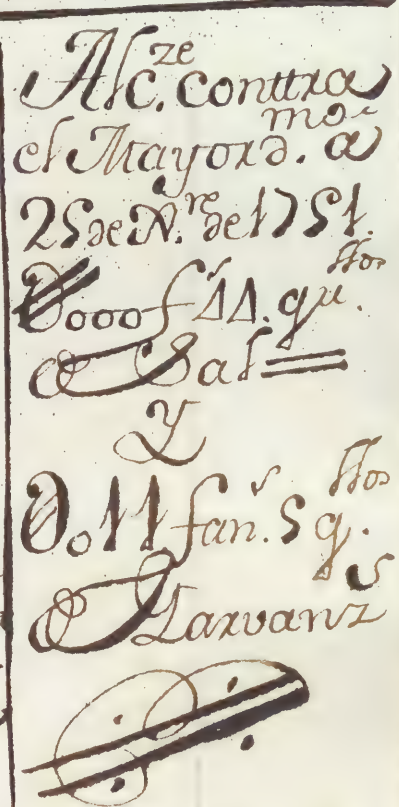 Alc.ze conttra
el Mayord.mo a
25 de N.re de 1751.
U000 f.s 11. qu.llos
de Sal =
Y
U011 fan.s 5 q.llos
de Garvanz.s